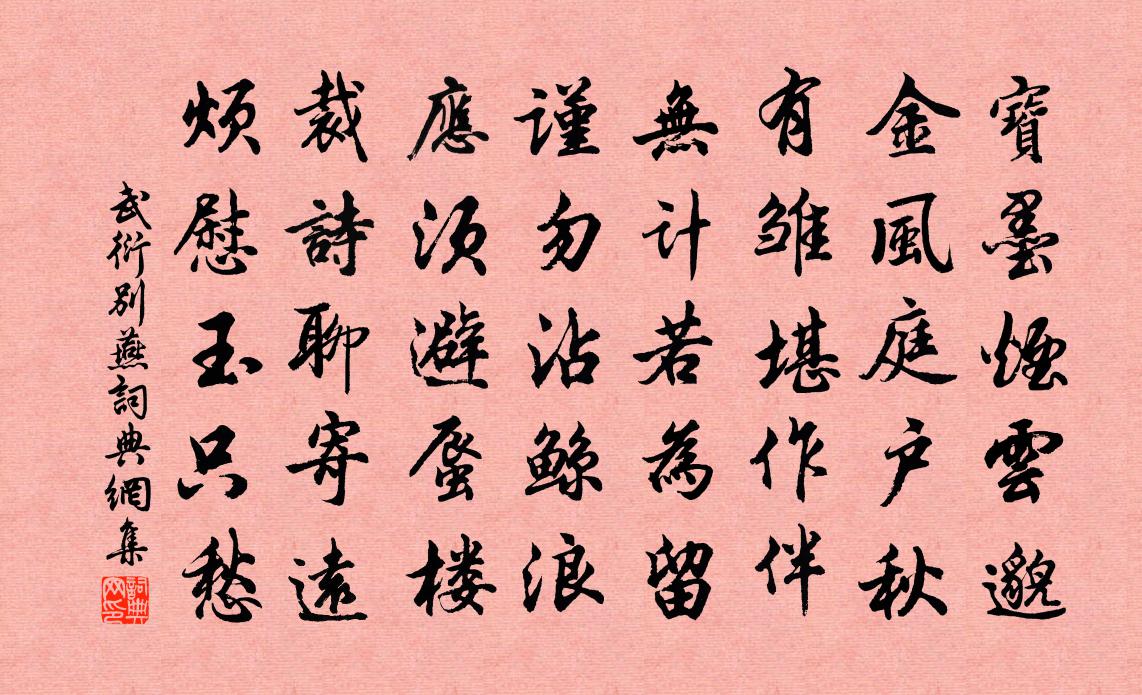 寶墨煙雲邈
金風庭户秋
有雏堪作伴
無计若為留
謹勿沾鲸浪
應须避蜃楼
裁詩聊寄遠
烦慰玉只愁
武衍别燕詞典網集